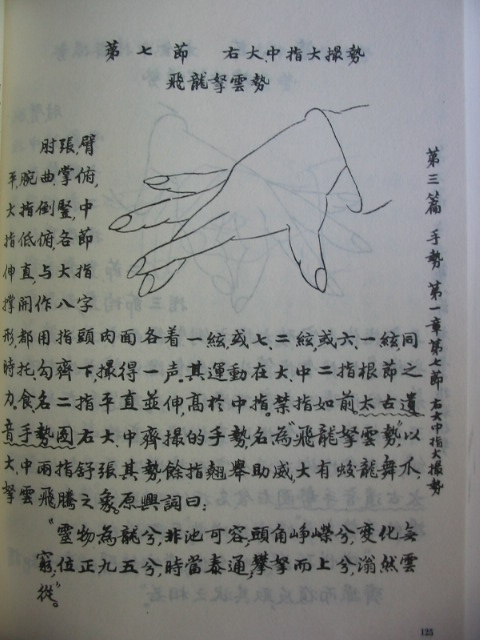 第七節　右大、中指大撮勢
飛龍拏雲勢
肘張、臂
平、腕曲、掌俯、
大指倒豎，中
指低俯，各節
伸直，与大指
撑開作八字
形，都用指頭肉面各着一絃，或七、二絃，或六、一絃，同
時托、勾齊下，撮得一声。其運動在大、中二指根節之
力。食名二指平直並伸，高於中指。禁指如前。太古遺
音手勢圖右大、中齊撮的手勢名為“飛龍拏雲勢”，以
大、中兩指舒張其勢，餘指翹舉助威，大有蛟龍舞爪，
拏雲飛騰之象。原興詞曰：
“靈物為龍兮，非池可容，頭角崢嶸兮，變化無
窮，位正九五兮，時當泰通，攀拏而上兮，滃然雲
從。”
第三篇　手勢　第一章第七節　右大、中指大撮勢
125